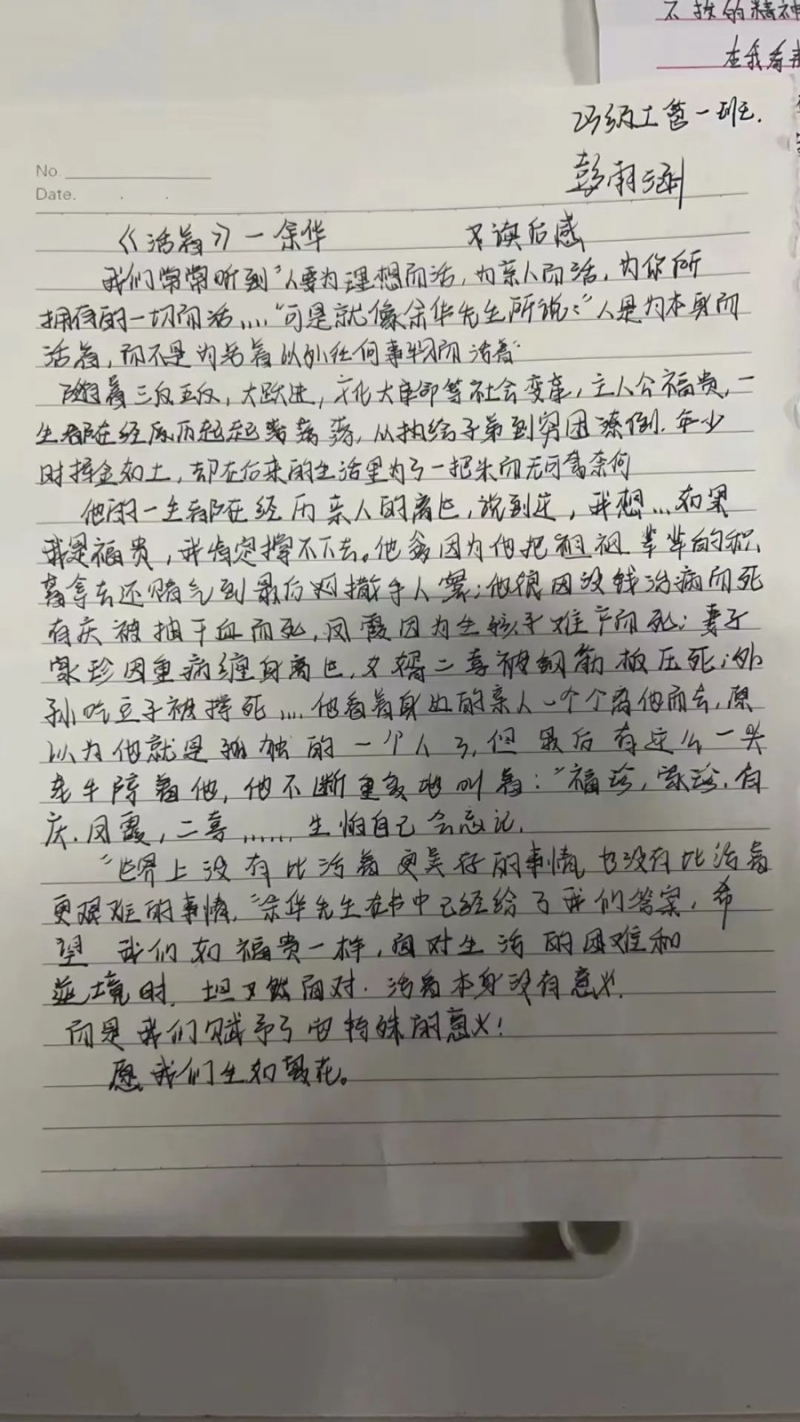 不放的精神
在我看来
23纺工营一班.
彭雨涵
No.
Date.
《活着》一余华 读后感
我们常常听到"人要为理想而活,为亲人而活,为你所
拥有的一切而活...."可是就像余华先生所说:"人是为本身而
活着,而不是为活着以外任何事物而活着"
随着三反五反,大跃进,文化大革命等社会变革,主人公福贵,一
生都在经历起起落落,从纨绔子弟到穷困潦倒.年少
时挥金如土,却在后来的生活里为了一把米而无可奈何
他的一生都在经历亲人的离世,说到这,我想...如果
我是福贵,我肯定撑不下去.他爹因为他把祖祖辈辈的积
蓄拿去还赌气到最后撒手人寰;他娘因没钱治病而死
有庆被抽干血而死,凤霞因为生孩子难产而死;妻子
家珍因重病缠身离世,女婿二喜被钢筋板压死;外
孙吃豆子被撑死...他看着身边的亲人一个个离他而去,原
以为他就是孤独的一个人了,但最后有这么一头
老牛陪着他,他不断重复地叫着:"福珍,家珍.有
庆.凤霞,二喜......生怕自己会忘记.
"世界上没有比活着更美好的事情,也没有比活着
更艰难的事情,"余华先生在书中已经给了我们答案,希
望 我们如福贵一样,面对生活的困难和
逆境时.坦然面对.活着本身没有意义.
而是我们赋予了它特殊的意义!
愿我们生如夏花。